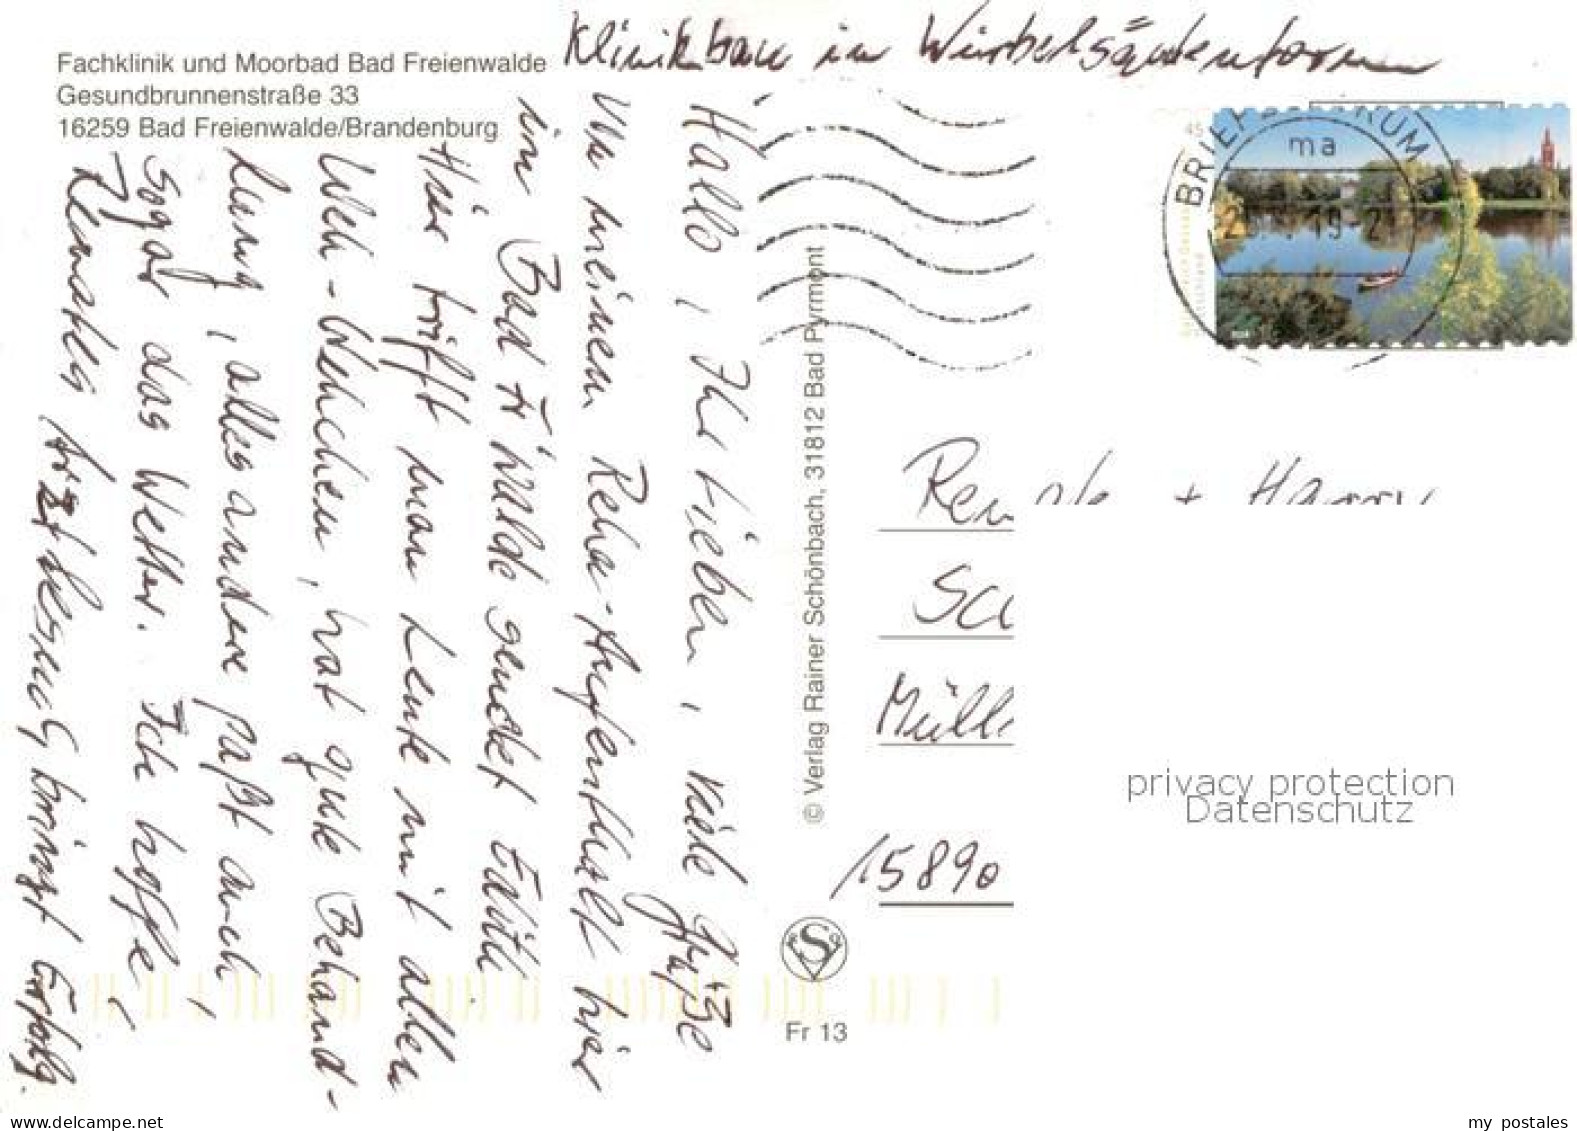 Fachklinik und Moorbad Bad Freienwalde
Gesundbrunnenstraße 33
16259 Bad Freienwalde/Brandenburg
Klinikbau in Wirbelsäulenform
Hallo, Ihr Lieben, viele Grüße
von meinem Reha-Aufenthalt hier
in Bad Fr'walde sendet Edith
Hier trifft man Leute mit allen
Weh-Wehchen, hat gute Behand-
lung, alles andere paßt auch,
sogar das Wetter. Ich hoffe,
Renates Arztbesuch bringt Erfolg.
© Verlag Rainer Schönbach, 31812 Bad Pyrmont
BRIEFZENTRUM
ma
45
Deutschland
Müll
15890
privacy protection
Datenschutz
S
Fr 13
my postales
www.delcampe.net